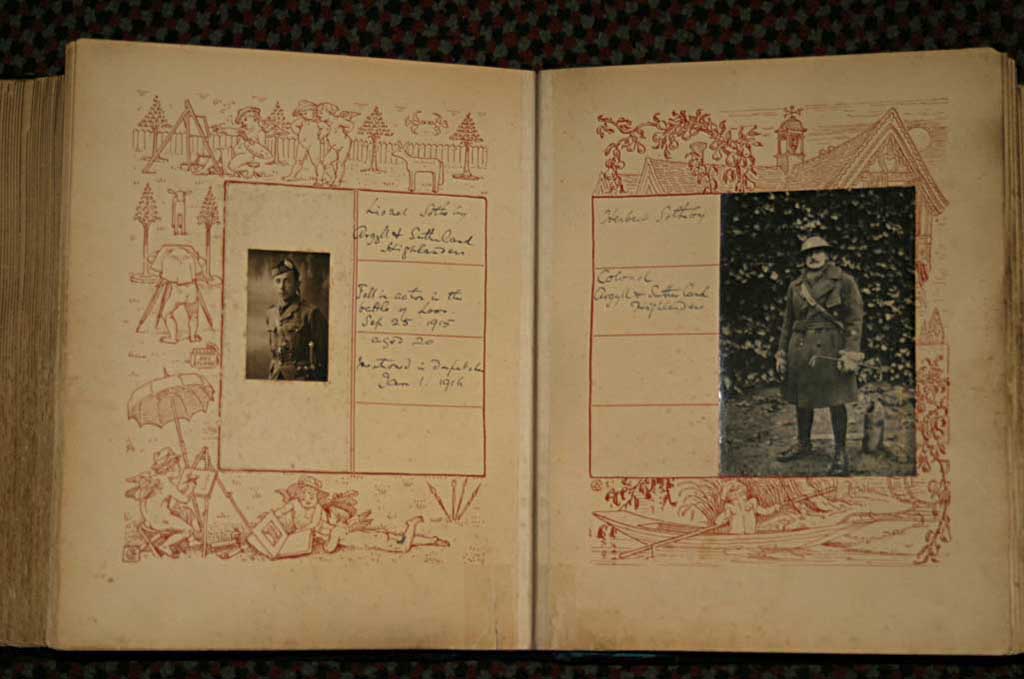 Lionel Sotheby
Argyll & Sutherland
Highlanders
Fell in action in the
battle of Loos.
Sep 25. 1915
aged 20
Mentioned in Dispatches
Jan 1. 1916
Herbert Sotheby
Colonel
Argyll & Sutherland
Highlanders